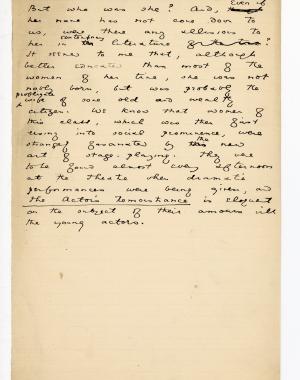 But who was she? And, even if
her name has not come down to
us, were there any allusions to
her in contemporary literature
It seems to me that, although
better educated than most of the
women of her time, she was not
nobly born, but was probably the
profligate wife of some old and wealthy
citizen. We know that women of
this class, which was then first
rising into social prominence, were
strangely fascinated by the new
art of stage-playing. They were
to be found almost every afternoon
at the theatre when dramatic
performances were being given, and
The Actors Remonstrance is eloquent
on the subject of their amours with
the young actors.